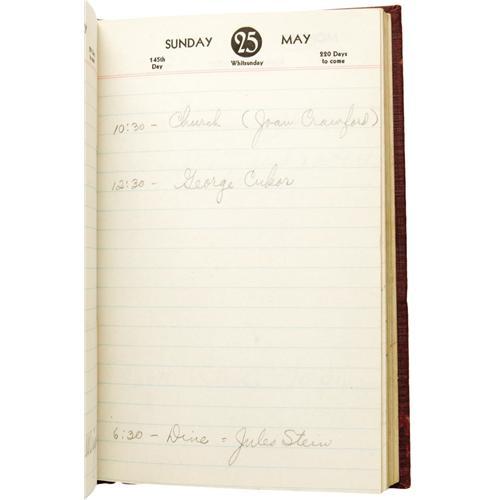 SUNDAY 25 MAY
145th Day Whitsunday 220 Days to come
10:30 - Church (Joan Crawford)
12:30 - George Cukor
6:30 - Dine = Jules Stein